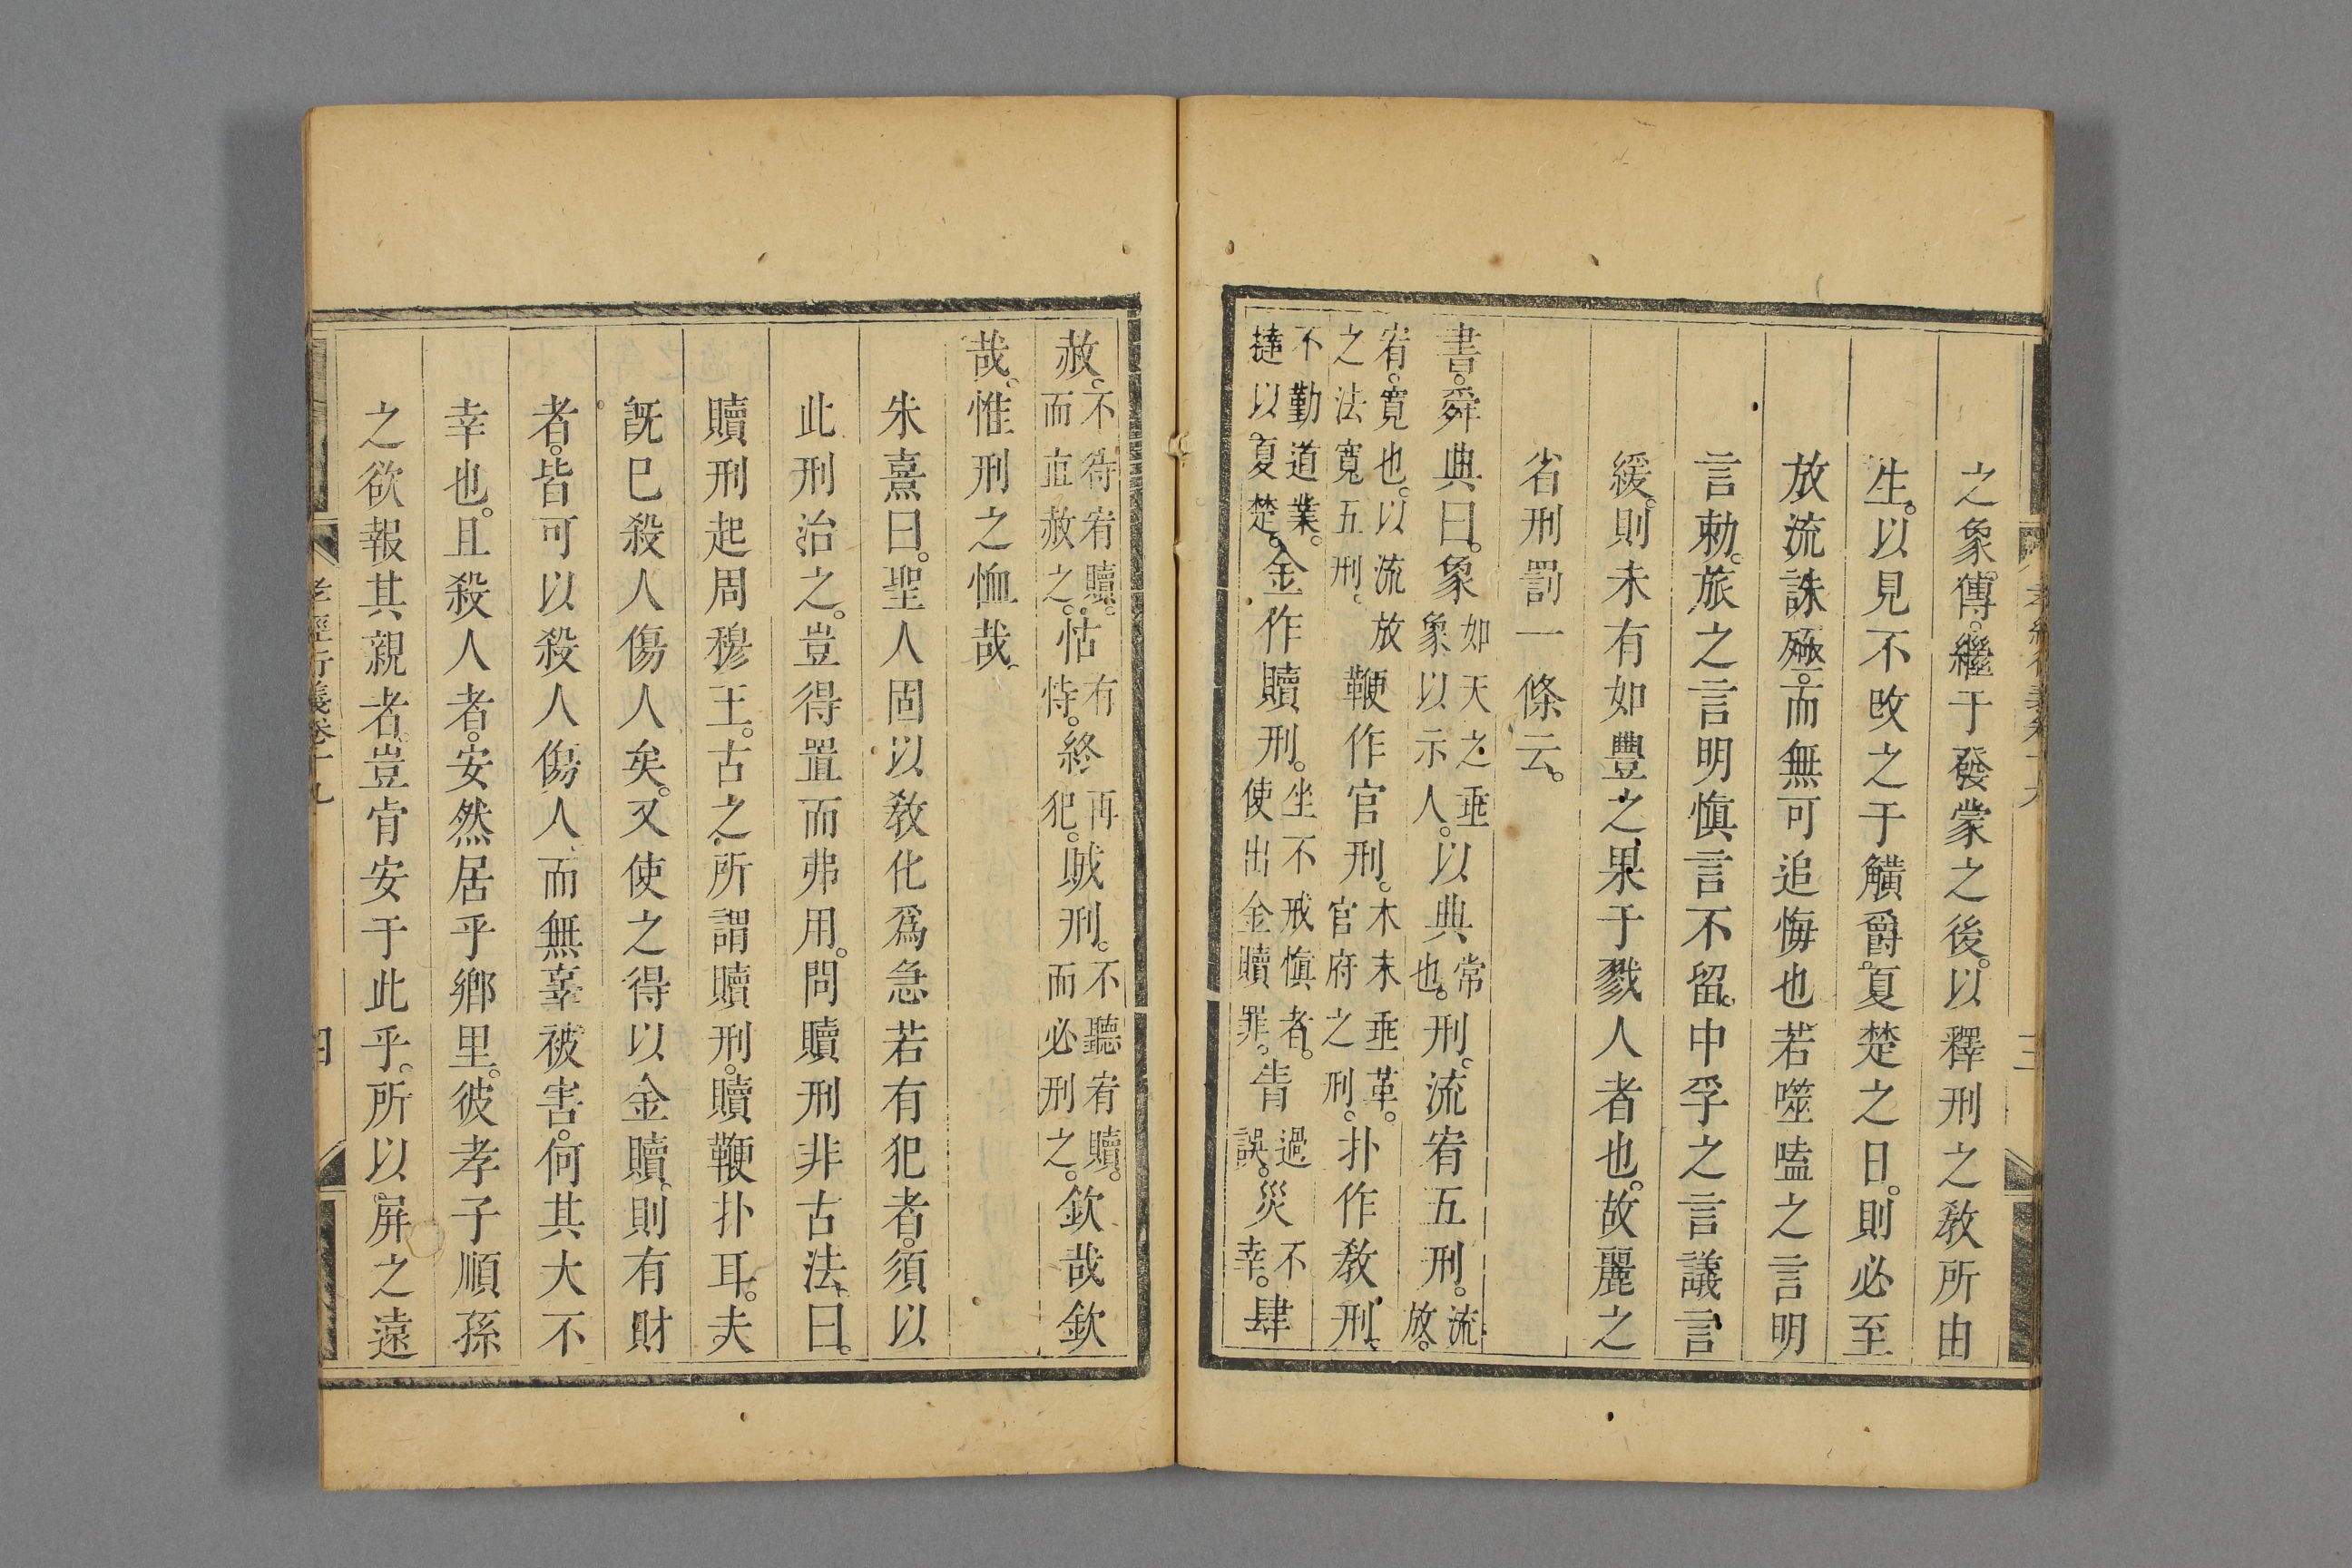 之象傳。繼于發蒙之後。以釋刑之敎所由
生。以見不攺之于觵爵。夏楚之日。則必至
放流誅殛。而無可追悔也若噬嗑之言明
言勅。旅之言明愼言不留。中孚之言議言
緩。則未有如豐之果于戮人者也。故麗之
省刑罰一條云。
書。舜典曰。象如天之垂象以示人。以典常也。刑。流宥五刑。流放。
宥。寛也。以流放之法寬五刑。鞭作官刑。木末垂革。官府之刑。扑作敎刑。
不勤道業。撻以夏楚。金作贖刑。坐不戒愼者。使出金贖罪。眚過誤。災不幸。肆
赦。不待宥贖。而直赦之。怙有恃。終再犯。賊刑。不聽宥贖。而必刑之。欽哉欽
哉。惟刑之恤哉。
朱熹曰。聖人固以敎化爲急若有犯者。須以
此刑治之。豈得置而弗用。問贖刑非古法。曰。
贖刑起周穆王。古之所謂贖刑。贖鞭扑耳。夫
旣巳殺人傷人矣。又使之得以金贖。則有財
者。皆可以殺人傷人。而無辜被害。何其大不
幸也。且殺人者。安然居乎鄉里。彼孝子順孫
之欲報其親者。豈肯安于此乎。所以屏之遠
孝經衍義卷十九
四